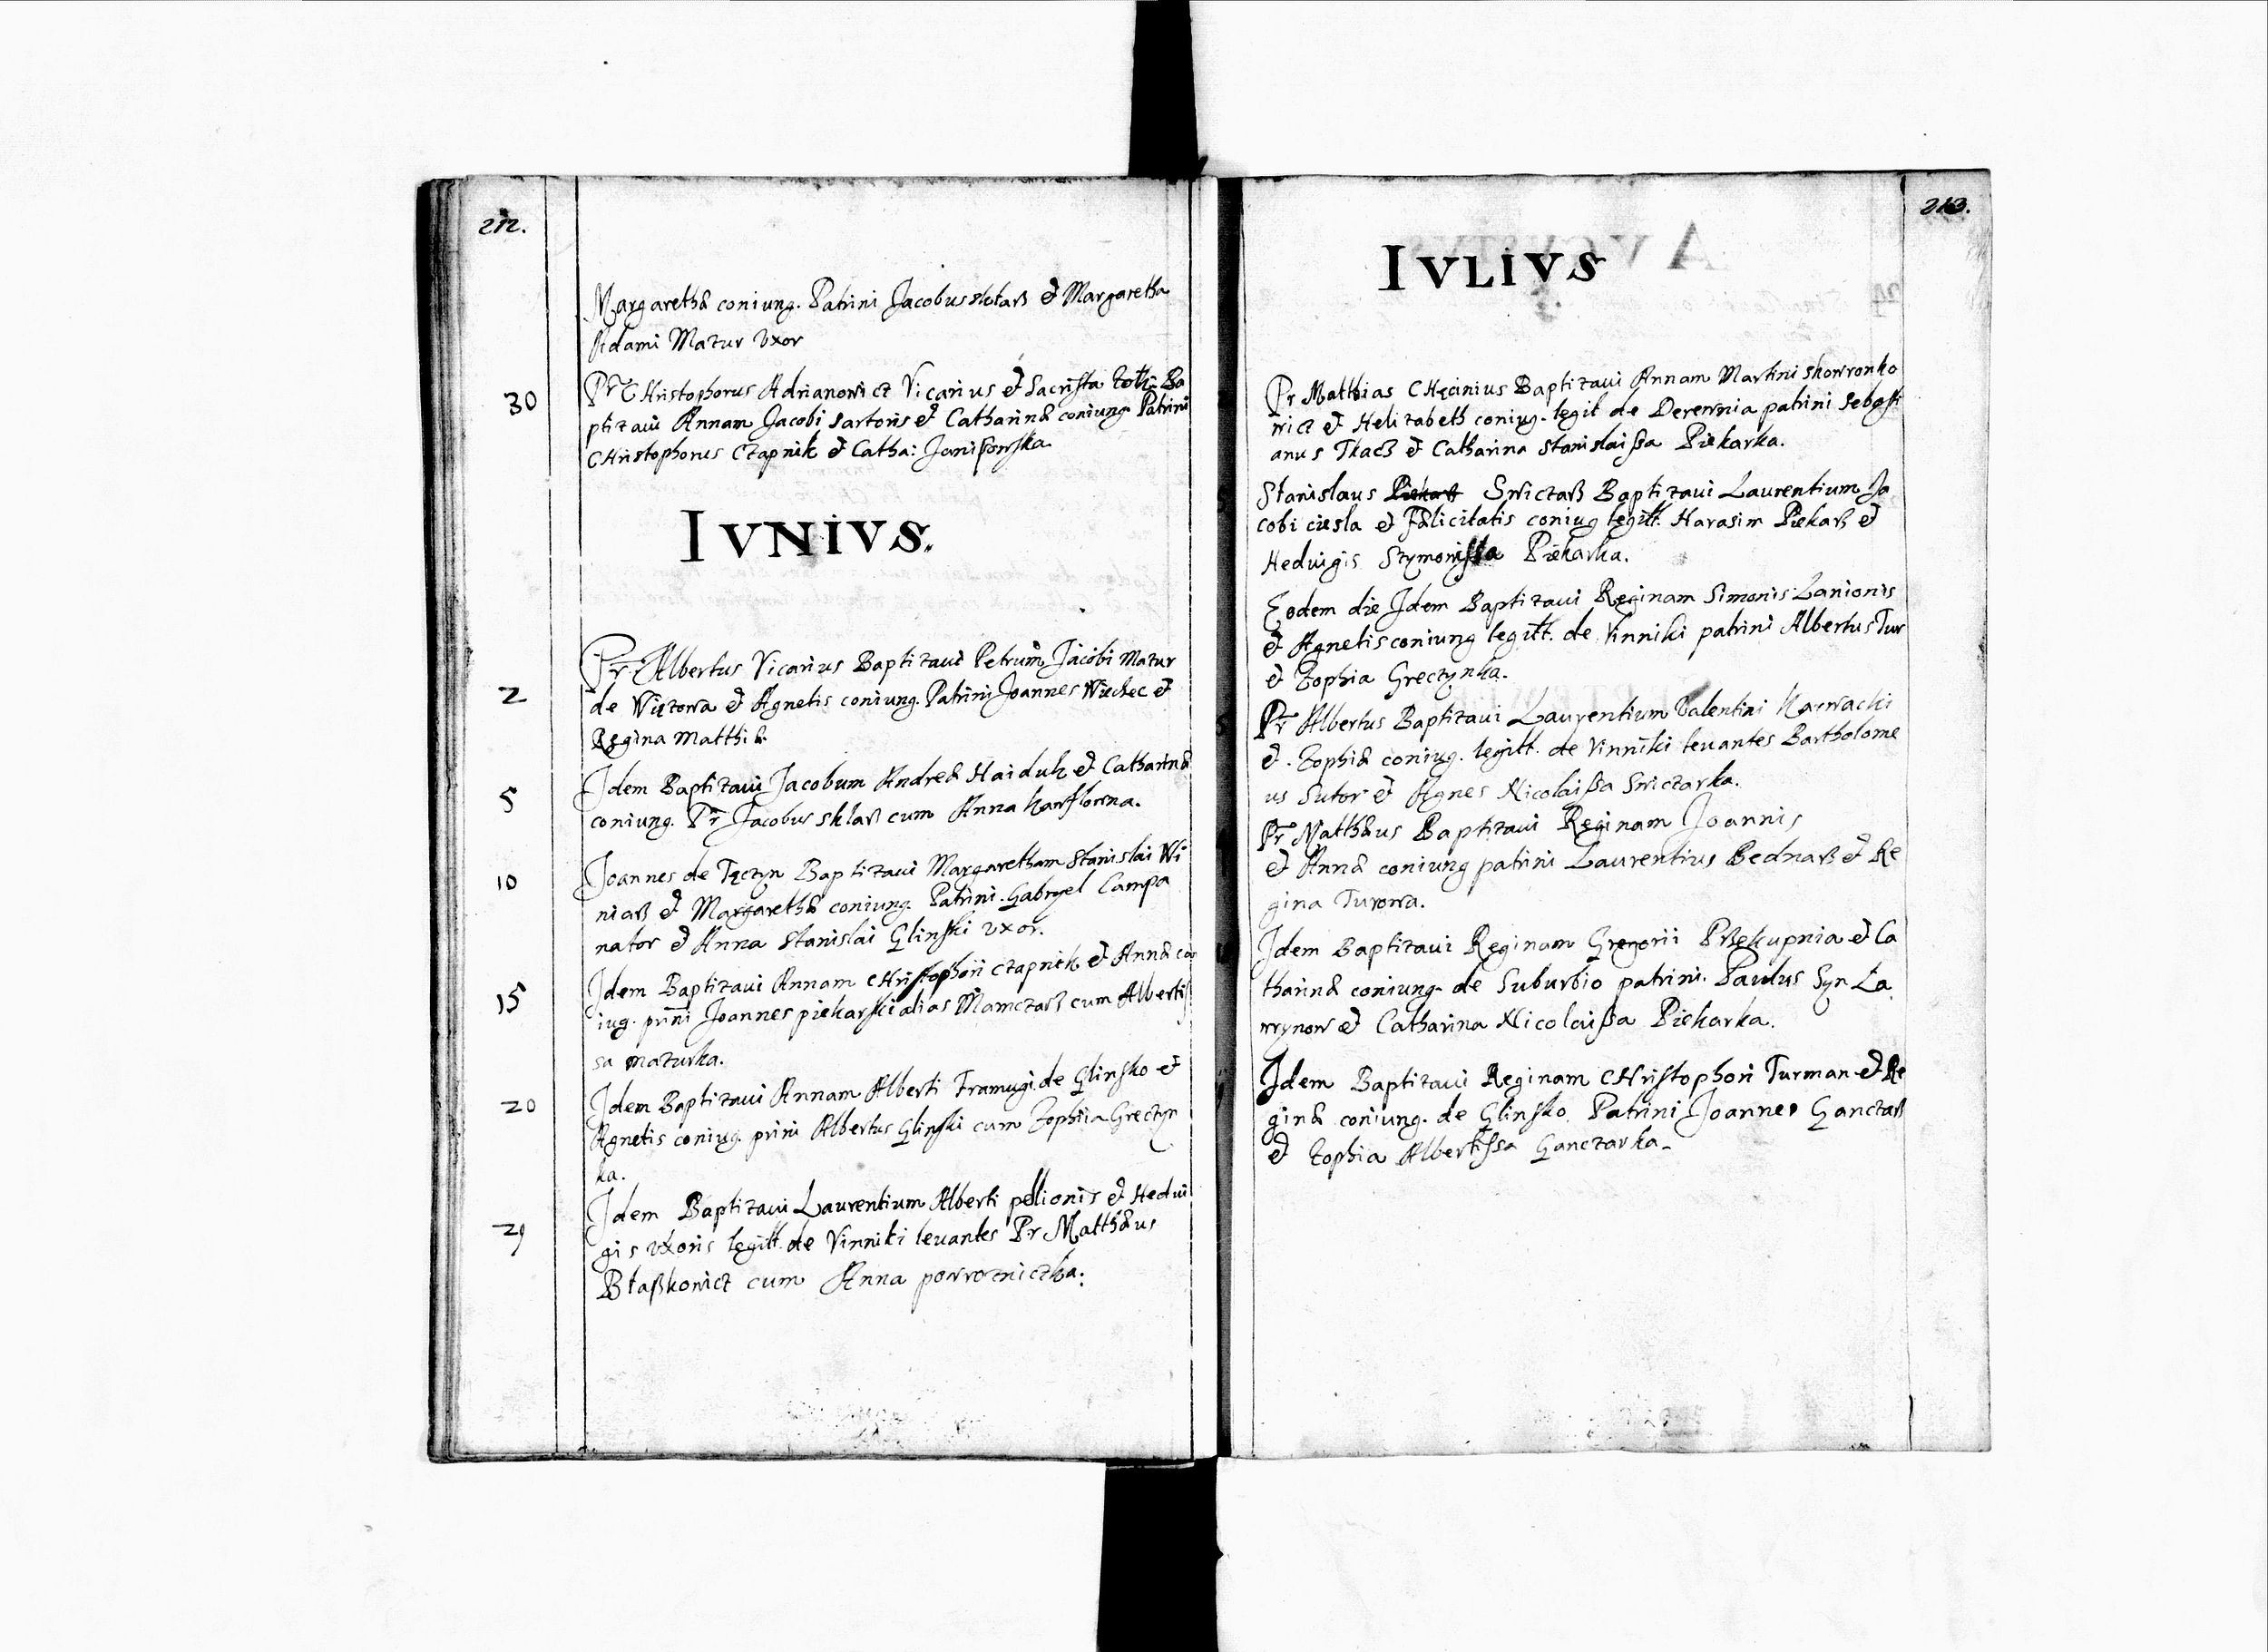 212.
Margarethæ coniung. Patrini Jacobus sklarß et Margaretha
Adami Mazur vxor
30
Pr CHristophorus Adrianowicz Vicarius et Sacrista Zolk: Ba
ptizaui Annam Jacobi sartoris et Catharinæ coniung. Patrini
CHristophorus Czapnik et Catha: Janißowska
IVNIVS.
2
Pr Albertus Vicarius Baptizaui Petrum Jacobi Mazur
de Wiązowa et Agnetis coniung. Patrini Joannes Wiechec et
Regina Matthiæ.
5
Jdem Baptizaui Jacobum Andreæ Haiduk et Catharinæ
coniung. Pr Jacobus sklarß cum Anna
10
Joannes de Tęczyn Baptizaui Margaretham Stanislai Wi
niarß et Margarethæ coniung. Patrini Gabryel Campa
nator et Anna Stanislai Glinski vxor.
15
Jdem Baptizaui Annam CHristophori czapnik et Annæ con
iug. prini Joannes piekarski alias Mamczarß cum Albertis
sa mazurka.
20
Jdem Baptizaui Annam Alberti Framugi de Glinsko et
Agnetis coniug. prini Albertus Glinski cum Zophiia Greczyn
ka.
29
Jdem Baptizaui Laurentium Alberti pellionis et Hedui
gis vxoris legitt. de Vinniki leuantes Pr Matthæus
Błaßkowicz cum Anna powrozniczka.
213.
IVLIVS
Pr Matthias CHęcinius Baptizaui Annam Martini skowronko
wicz et Helizabeth coniug. legit de Derewnia patrini Sebasti
anus Tkacß et Catharina Stanislaißa Piekarka.
Stanislaus Piekarß Swiczarß Baptizaui Laurentium Ja
cobi ciesla et Fælicitatis coniug legitt. Harasim Piekarß et
Heduigis Szymonissa Piekarka.
Eodem die Jdem Baptizaui Reginam Simonis Lanionis
et Agnetis coniung legitt. de Vinniki patrini Albertus Tur
et Zophia Greczynka.
Pr Albertus Baptizaui Laurentium Valentini Karwacki
et Zophiæ coniug. legitt. de Vinniki leuantes Bartholome
us Sutor et Agnes Nicolaißa Swiczarka.
Pr Matthæus Baptizaui Reginam Joannis
et Annæ coniung patrini Laurentius Bednarß et Re
gina Turowa.
Jdem Baptizaui Reginam Gregorii Pßekupnia et Ca
tharinæ coniung. de Suburbio patrini. Paulus Syn Ła
wrynow et Catharina Nicolaißa Piekarka.
Jdem Baptizaui Reginam CHristophori Turman et Re
ginæ coniung. de Glinsko Patrini Joannes Ganczarß
et Zophia Albertissa Ganczarka.